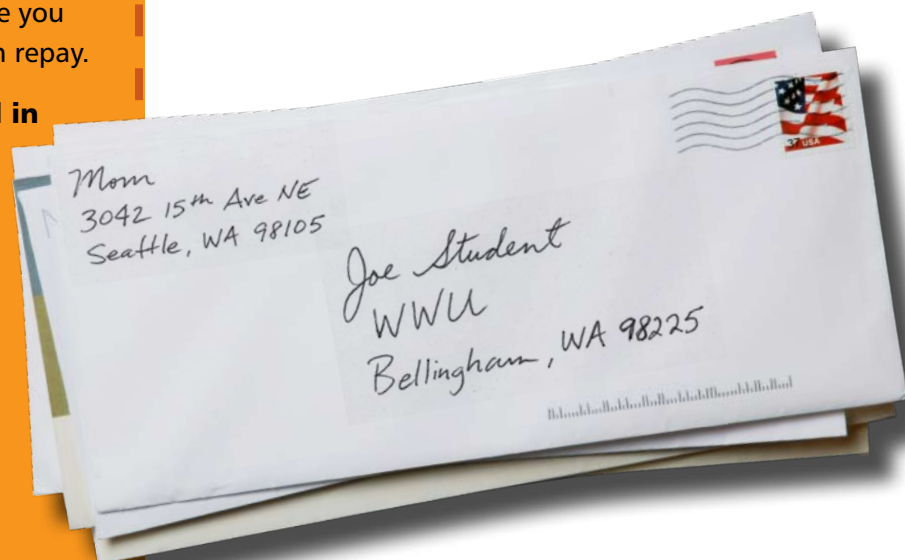 e you
n repay.
l in
Mom
3042 15th Ave NE
Seattle, WA 98105
Joe Student
WWU
Bellingham, WA 98225
37 USA